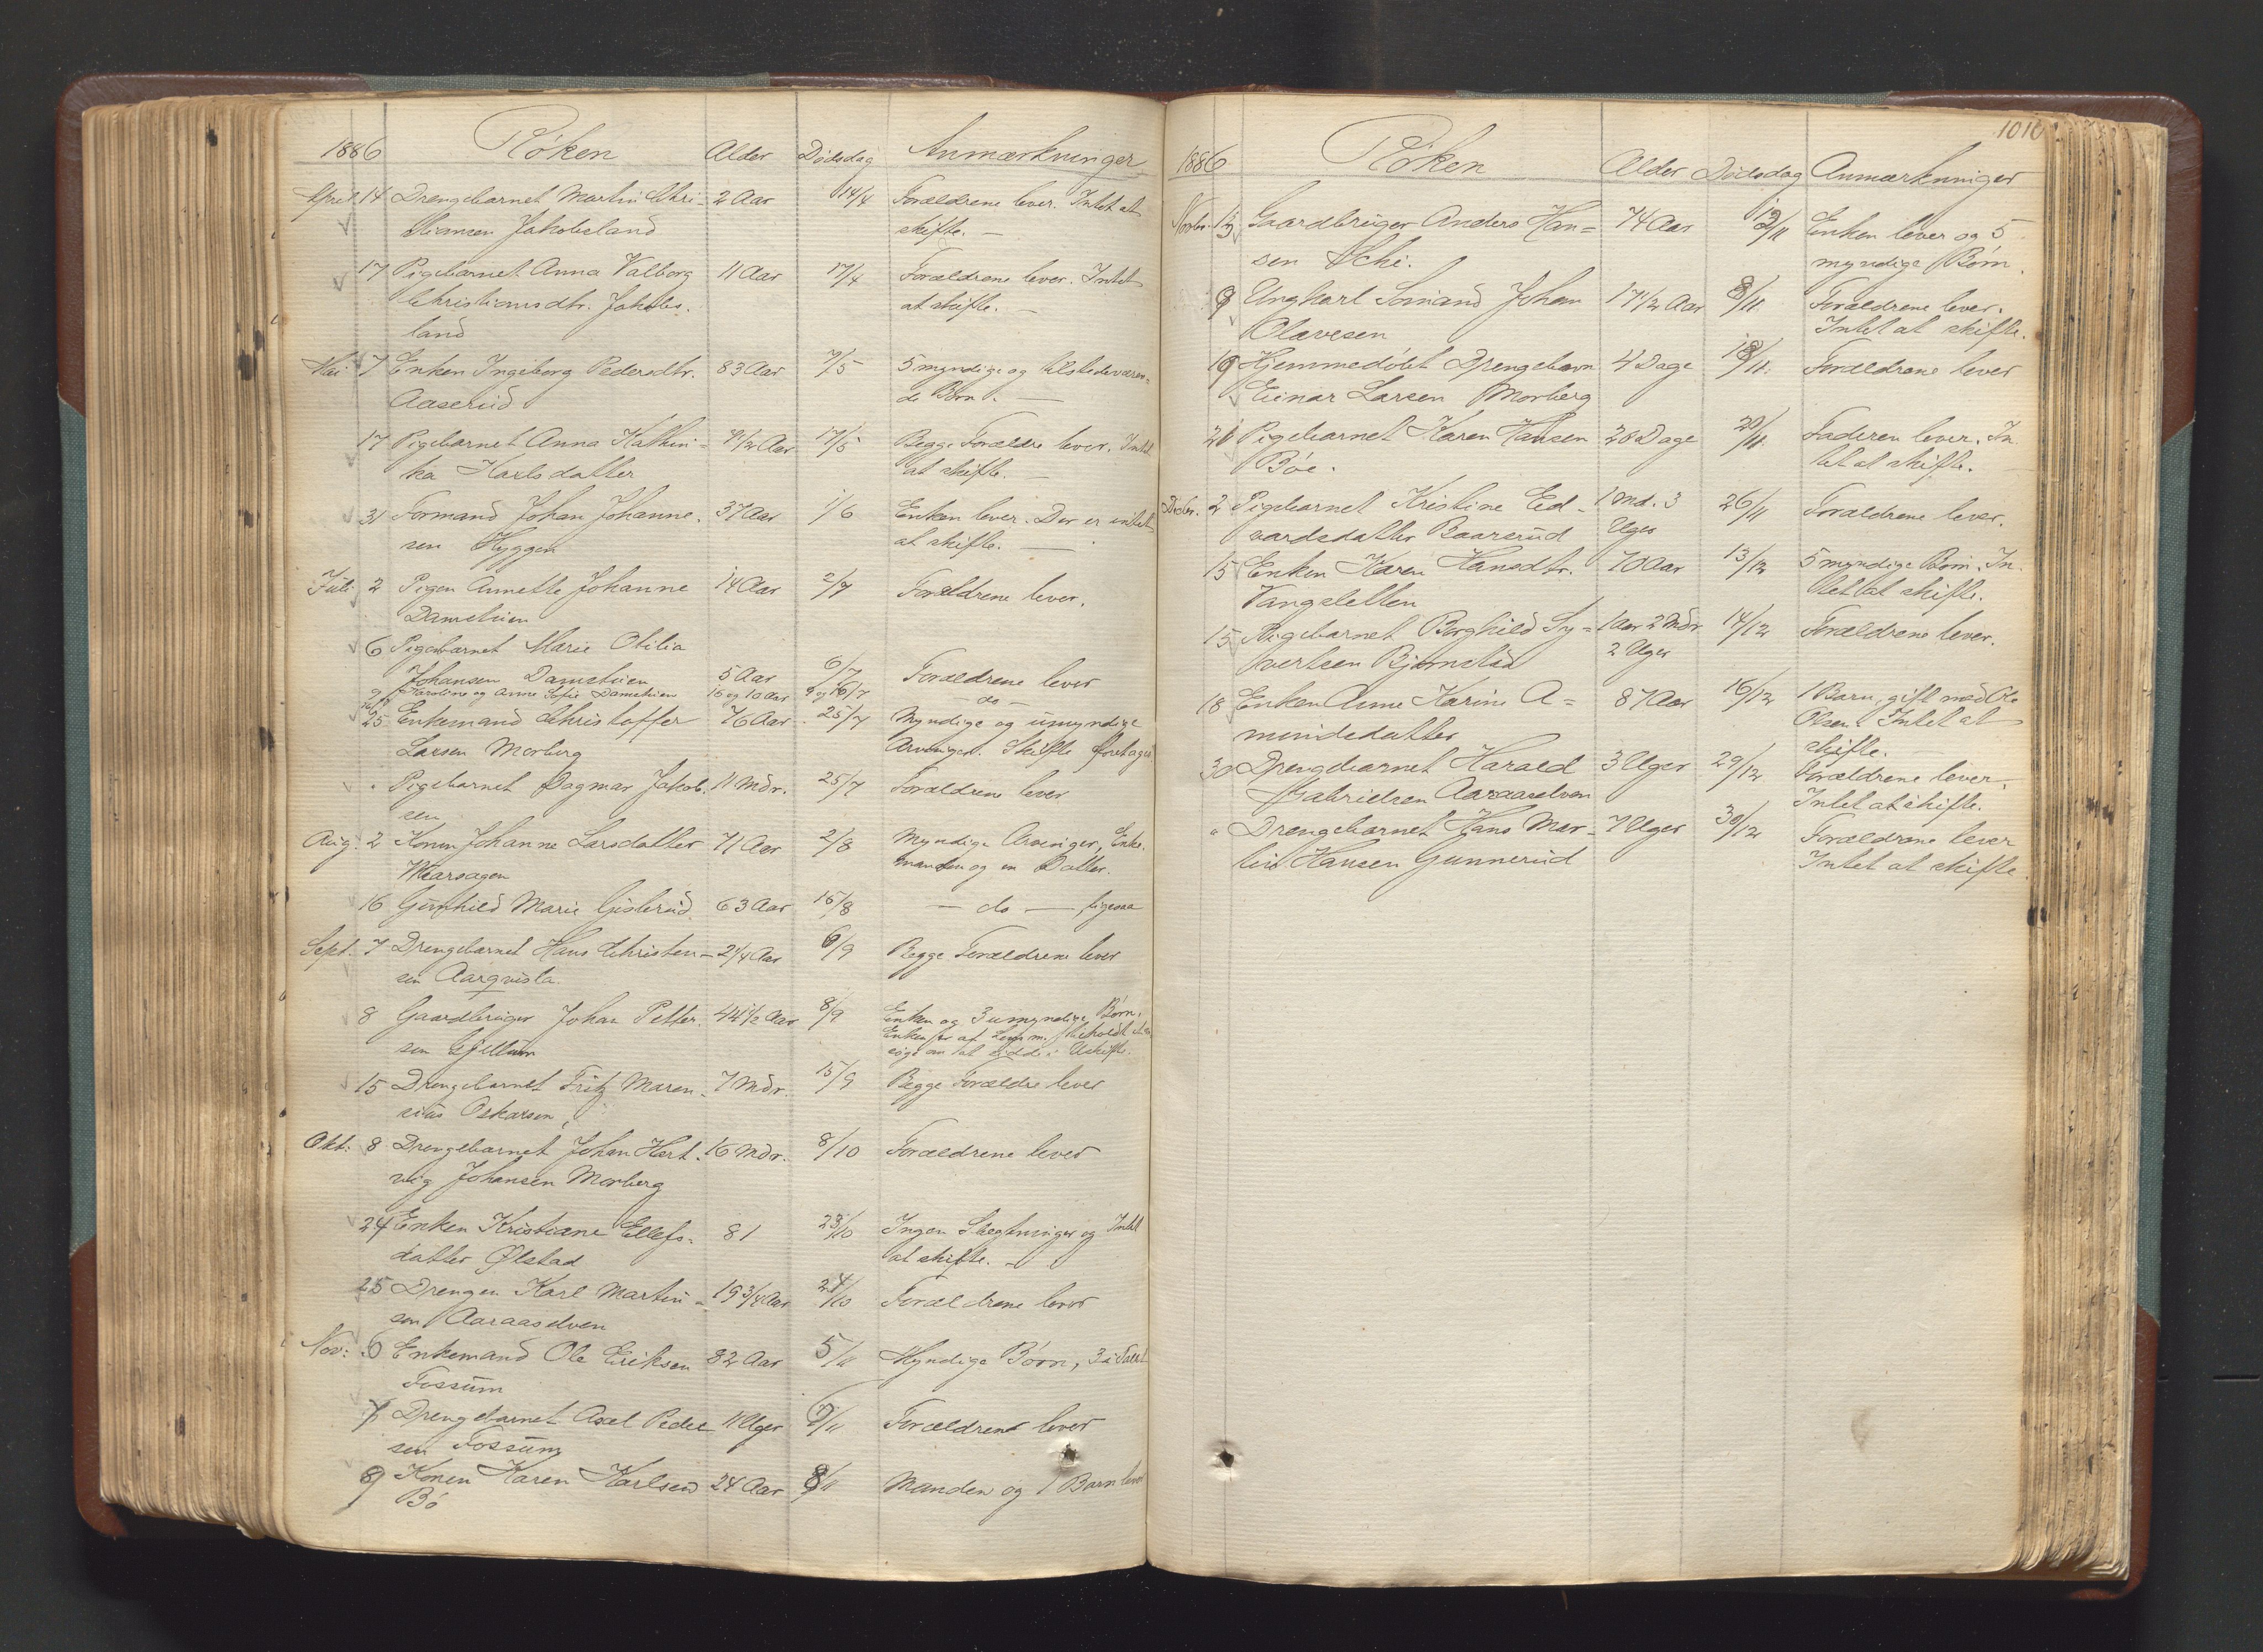 1886 Røken Alder Dødsdag Anmærkninger
April 14 Drengebarnet Martin Chri- 2 Aar 14/4 Forældrene lever. Intet at
stiansen Jakobsland skifte. —
17 Pigebarnet Anna Valborg 11 Aar 17/4 Forældrene lever. Intet
Christiansdtr. Jakobs- at skifte. —
land
Mai 7 Enken Ingeborg Pedersdtr. 83 Aar 7/5 5 myndige og tilstedeværen-
Aaserud de Børn. —
17 Pigebarnet Anna Kathin- 17/5 Begge Forældre lever. Intet
ka Karlsdatter at skifte. —
31 Formand Johan Johanne- 37 Aar 1/6 Enken lever. Der er intet
sen Hyggen at skifte. —
Juli 2 Pigen Annette Johanne 14 Aar 2/7 Forældrene lever.
Damstuen
6 Pigebarnet Marie Otilia
Johansen Damstuen 5 Aar 6/7 Forældrene lever
9 Karoline og Anne Sofie Damstuen 16 og 10 Aar 9 og 16/7 — do —
25 Enkemand Christoffer 76 Aar 25/7 Myndige og umyndige
Larsen Morberg Arvinger. Skifte foretages
" Pigebarnet Dagmar Jakob- 11 Mdr. 25/7 Forældrene lever
sen
Aug: 2 Konen Johanne Larsdatter 71 Aar 2/8 Myndige Arvinger, Enke-
manden og en Datter.
16 Gunhild Marie Gisterud 63 Aar 15/8 — do — ligesaa
Sept. 7 Drengebarnet Hans Christen- 2 1/4 Aar 6/9 Begge Forældrene lever
sen Aarqvisla
8 Gaardbruger Johan Petter- 44 1/2 Aar 8/9 Enken og 3 umyndige Børn.
sen Gjellum Enken
søge om at sidde i Uskifte.
15 Drengebarnet Fritz Maren- 7 Mdr. 15/9 Begge Forældre lever
sius Oskarsen
Okt: 8 Drengebarnet Johan Hart- 16 Mdr. 8/10 Forældrene lever
vig Johansen Morberg
24 Enken Kristiane Ellefs- 81 23/10 Ingen Slegtninger og Intet
datter Ølstad at skifte. —
25 Drengen Karl Martin- 19 3/4 Aar 24/10 Forældrene lever
sen Aaraaselven
Nov: 6 Enkemand Ole Eriksen 82 Aar 5/11 Myndige Børn, 3 i Tallet
Fossum
7 Drengebarnet Axel Peder- 11 Uger 6/11 Forældrene lever
sen Fossum
9 Konen Karen Karlsen 24 Aar 8/11 Manden og 1 Barn lever
Bö
1010
1886 Røken Alder Dødsdag Anmærkninger
Novbr. 13 Gaardbruger Anders Han= 74 Aar 12/11 Enken lever og 5
sen myndige Børn.
9 Ungkarl Sømand Johan 17 1/2 Aar 8/11 Forældrene lever.
Olavesen Intet at skifte.
19 Hjemmedøbt Drengebarn 4 Dage 18/11 Forældrene lever
Einar Larsen Morberg
21 Pigebarnet Karen Hansen 28 Dage 20/11 Faderen lever. In-
Bøe. tet at skifte.
Decbr. 2 Pigebarnet Kristine Ed- 1 Md. 3 26/11 Forældrene lever.
vardsdatter Baarsrud Uger
15 Enken Karen Hansdtr. 70 Aar 13/12 5 myndige Børn. In-
Vangsletten tet at skifte.
15 Pigebarnet Borghild Sy= 1 Aar 2 Mdr 14/12 Forældrene lever.
vertsen Bjørnstad 2 Uger
18 Enken Anne Karine A= 87 Aar 16/12 1 Barn, gift med Ole
mundsdatter Olsen. Intet at
skifte.
30 Drengebarnet Harald 3 Uger 29/12 Forældrene lever,
Gabrielsen Aaraaselven Intet at skifte.
" Drengebarnet Hans Mar- 7 Uger 30/12 Forældrene lever
tin Hansen Gunnerud Intet at skifte.